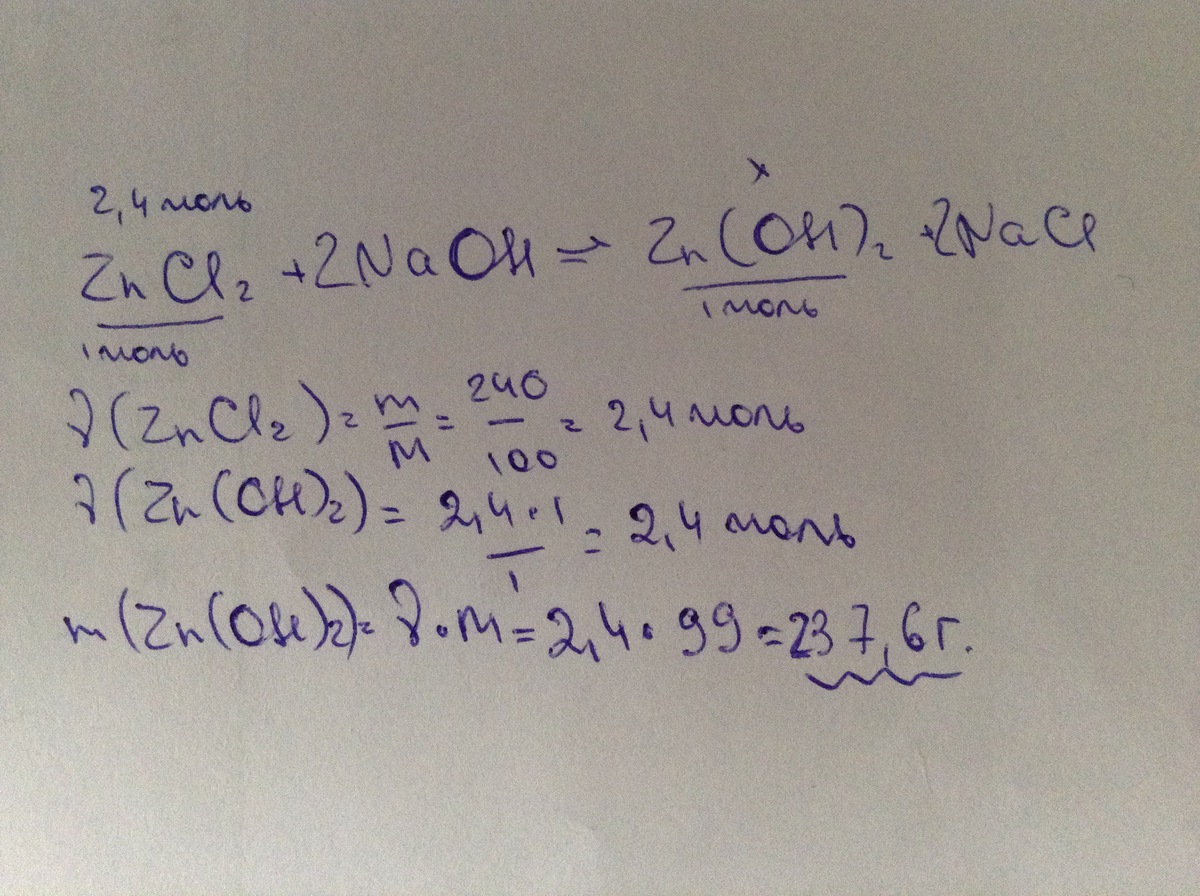 2,4 моль x
ZnCl₂ + 2NaOH => Zn(OH)₂ + 2NaCl
1 моль 1 моль
ν(ZnCl₂) = m/M = 240/100 = 2,4 моль
ν(Zn(OH)₂) = 2,4·1/1 = 2,4 моль
m(Zn(OH)₂) = ν·M = 2,4·99 = 237,6 г.